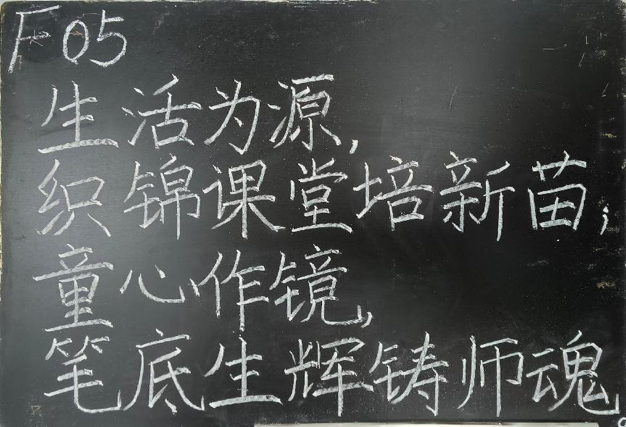 F05
生活为源,
织锦课堂培新苗;
童心作镜,
笔底生辉铸师魂